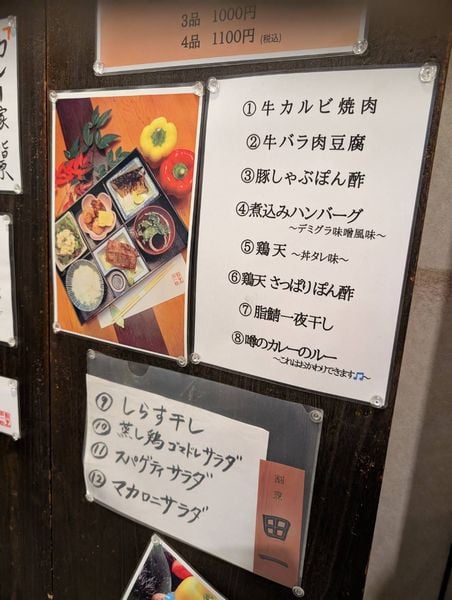 3品 1000円
4品 1100円(税込)
①牛カルビ焼肉
②牛バラ肉豆腐
③豚しゃぶぽん酢
④煮込みハンバーグ
～デミグラ味噌風味～
⑤鶏天 ～丼タレ味～
⑥鶏天 さっぱりぽん酢
⑦脂鯖一夜干し
⑧噂のカレーのルー
～これはおかわりできます🎵～
⑨ しらす干し
⑩ 蒸し鶏ゴマドレサラダ
⑪ スパゲティサラダ
⑫ マカロニサラダ
割烹